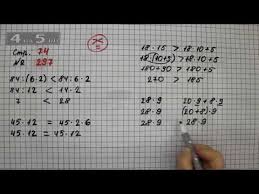 4 5
Стр. 74
№ 297
18·15 > 18·10+5
18·(10+5) > 180+5
180+90 > 180+5
270 > 185
84:(6·2) < 84:6·2
84:12 < 14·2
7 < 28
28·9 = 20·9+8·9
28·9 = (20+8)·9
28·9 = 28·9
45·12 = 45·2·6
45·12 = 45·12